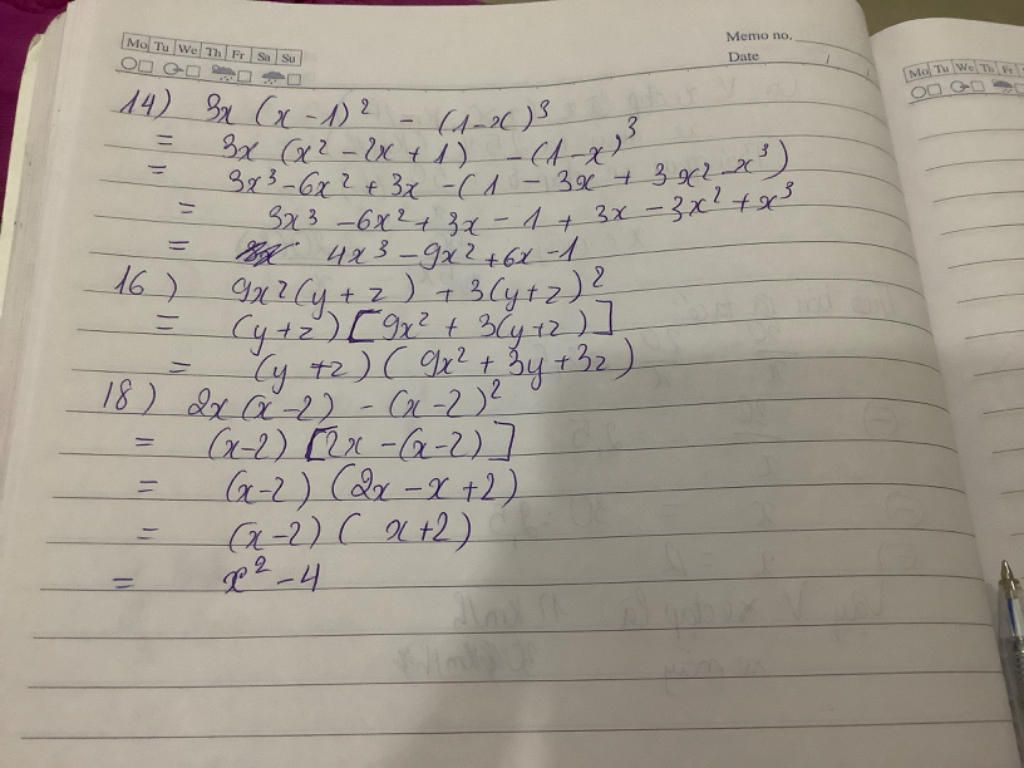 Mo Tu We Th Fr Sa Su
Memo no.
Date / /
14) 3x (x - 1)² - (1-x)³
= 3x (x² - 2x + 1) - (1-x)³
= 3x³ - 6x² + 3x - (1 - 3x + 3x² - x³)
= 3x³ - 6x² + 3x - 1 + 3x - 3x² + x³
= 4x³ - 9x² + 6x - 1
16) 9x²(y + z) + 3(y+z)²
= (y+z) [9x² + 3(y+z)]
= (y+z) (9x² + 3y + 3z)
18) 2x(x-2) - (x-2)²
= (x-2) [2x - (x-2)]
= (x-2) (2x - x + 2)
= (x-2) (x+2)
= x² - 4
Mo Tu We Th Fr